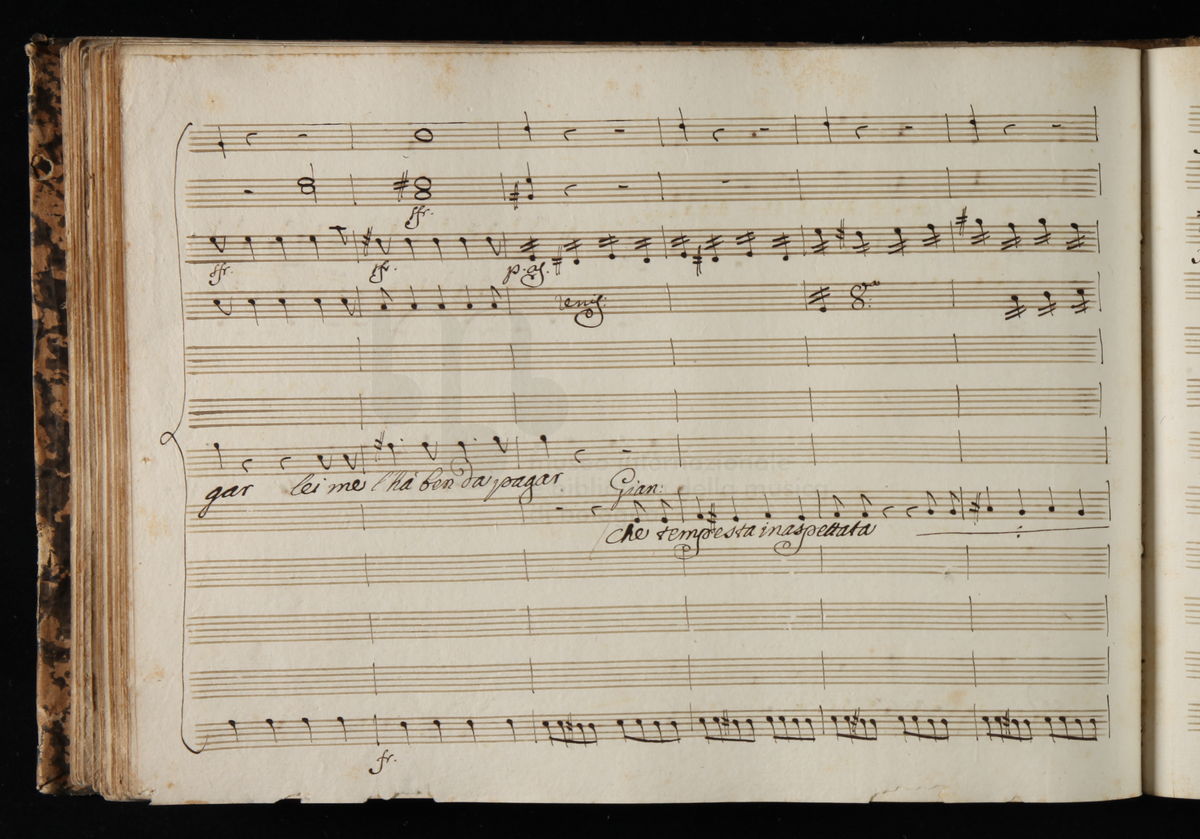 sfr.
sfr. sfr. p. as.
unis: 8va
gar lei me l'hà ben da pagar.
Gian:
che tempesta inaspettata
fr.